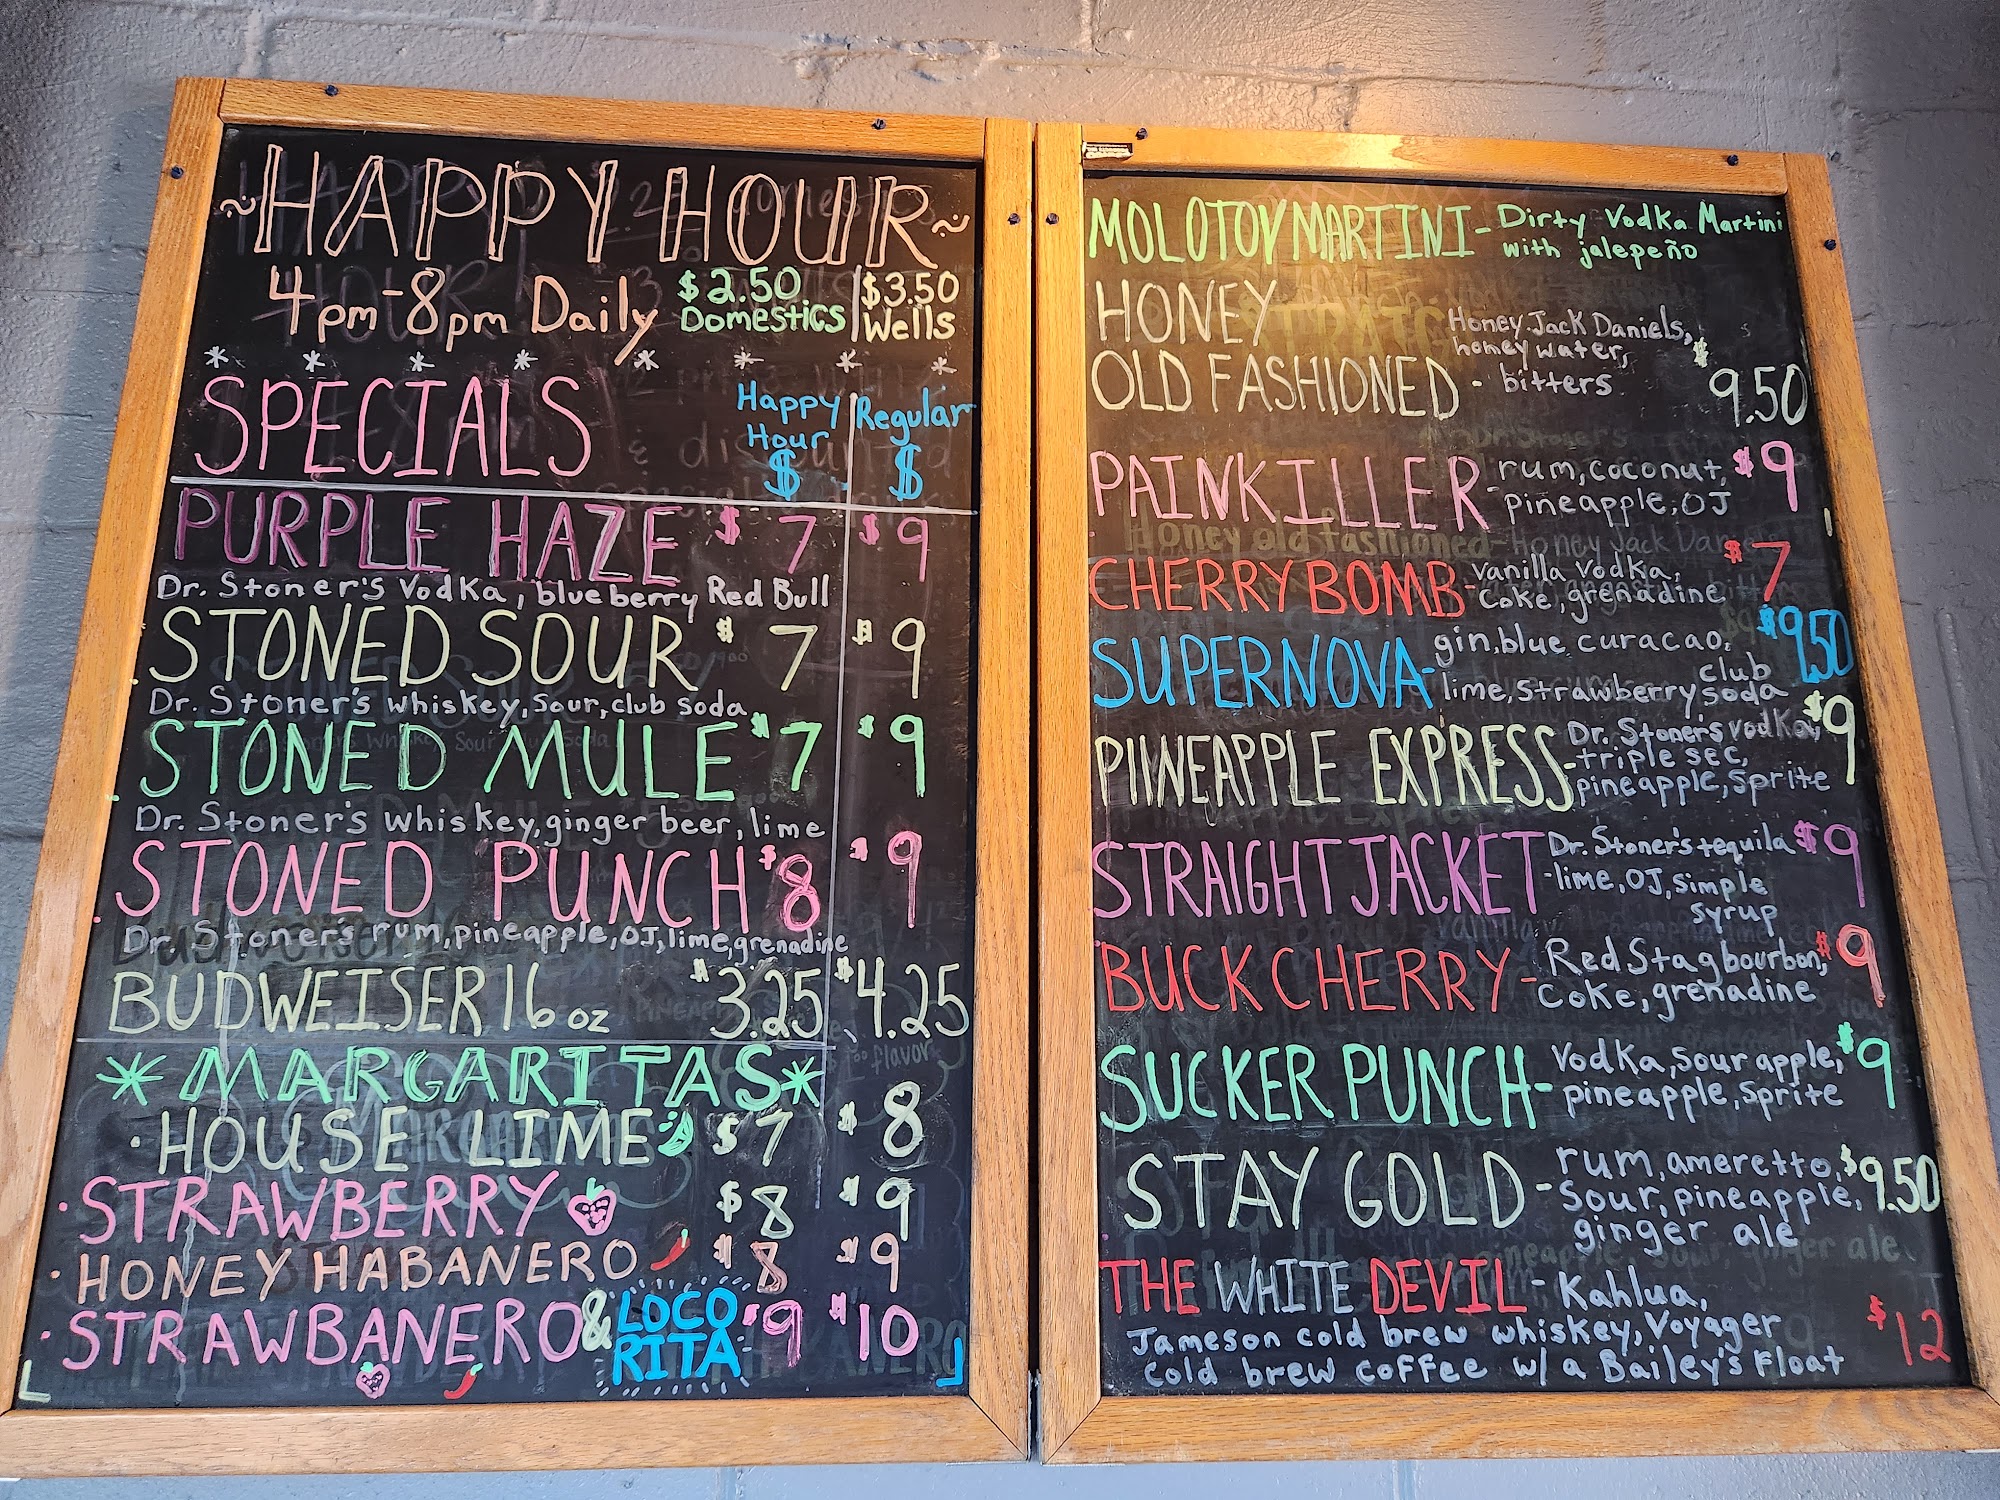 ~HAPPY HOUR~
4pm-8pm Daily $2.50 Domestics | $3.50 Wells
* * * * * * * *
SPECIALS Happy Hour $ Regular $
PURPLE HAZE $7 $9
Dr. Stoner's Vodka, blueberry Red Bull
STONED SOUR $7 $9
Dr. Stoner's whiskey, sour, club soda
STONED MULE $7 $9
Dr. Stoner's whiskey, ginger beer, lime
STONED PUNCH $8 $9
Dr. Stoner's rum, pineapple, OJ, lime, grenadine
BUDWEISER 16 oz $3.25 $4.25
*MARGARITAS*
·HOUSE LIME $7 $8
·STRAWBERRY $8 $9
·HONEY HABANERO $8 $9
·STRAWBANERO & LOCO RITA $9 $10
MOLOTOV MARTINI - Dirty Vodka Martini
with jalepeño
HONEY
OLD FASHIONED - Honey Jack Daniels,
honey water,
bitters $9.50
PAINKILLER - rum, coconut, $9
pineapple, OJ
CHERRY BOMB - vanilla vodka, $7
Coke, grenadine
SUPERNOVA - gin, blue curacao, $9.50
lime, strawberry club soda
PIINEAPPLE EXPRESS - Dr. Stoner's vodka, $9
triple sec,
pineapple, Sprite
STRAIGHT JACKET - Dr. Stoner's tequila $9
lime, OJ, simple
syrup
BUCK CHERRY - Red Stag bourbon, $9
Coke, grenadine
SUCKER PUNCH - Vodka, sour apple, $9
pineapple, Sprite
STAY GOLD - rum, ameretto, $9.50
Sour, pineapple,
ginger ale
THE WHITE DEVIL - Kahlua,
Jameson cold brew whiskey, Voyager $12
cold brew coffee w/ a Bailey's Float